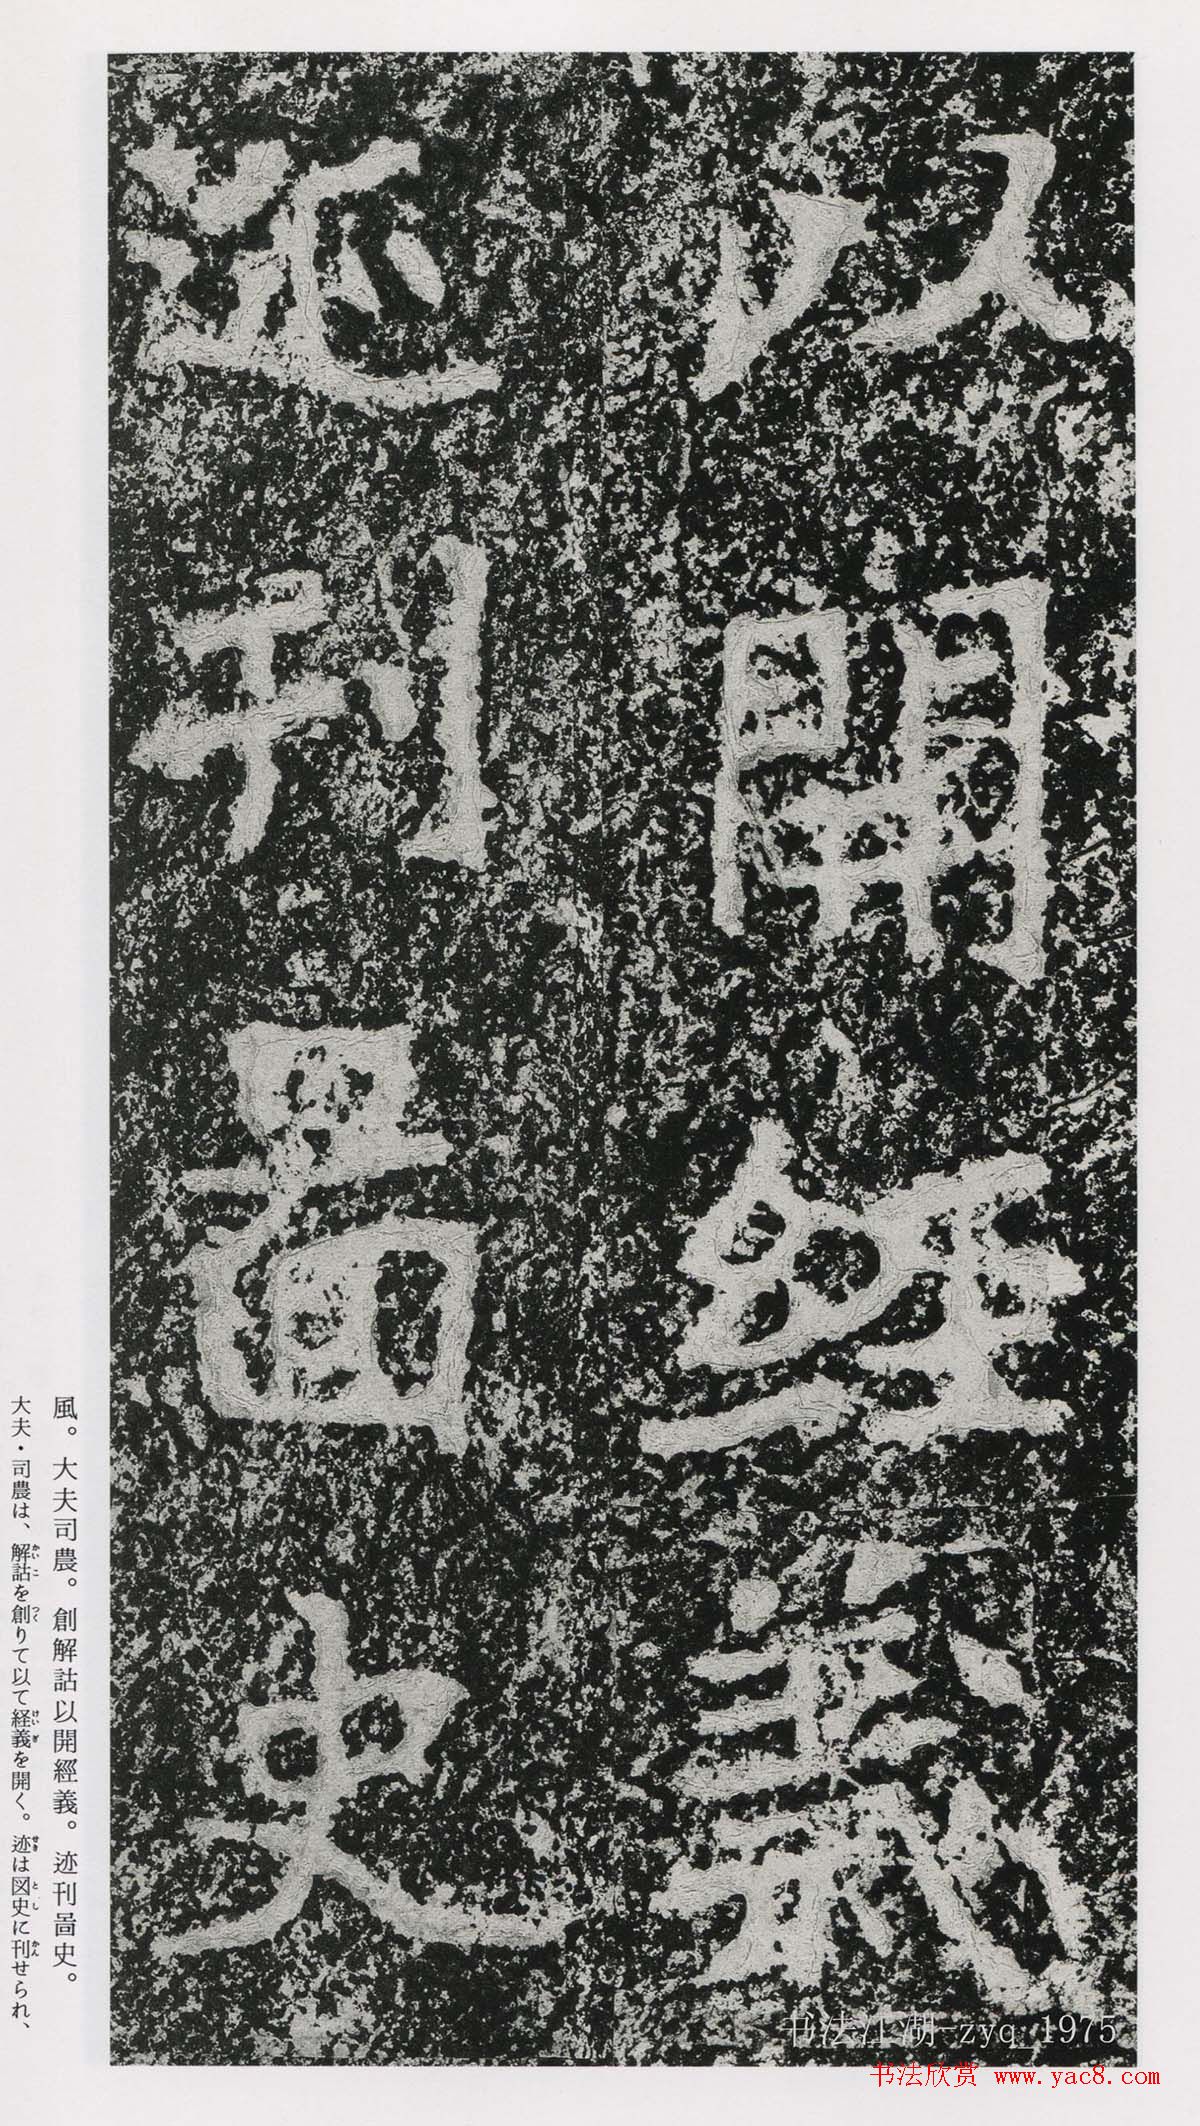 以開經義
迹刊啚史
風。大夫司農。創解詁以開經義。迹刊啚史。
大夫・司農は、解詁を創りて以て経義を開く。迹は図史に刊せられ、
かいこ つく けいぎ せき とし かん
书法江湖-zyq_1975
书法欣赏 www.yac8.com